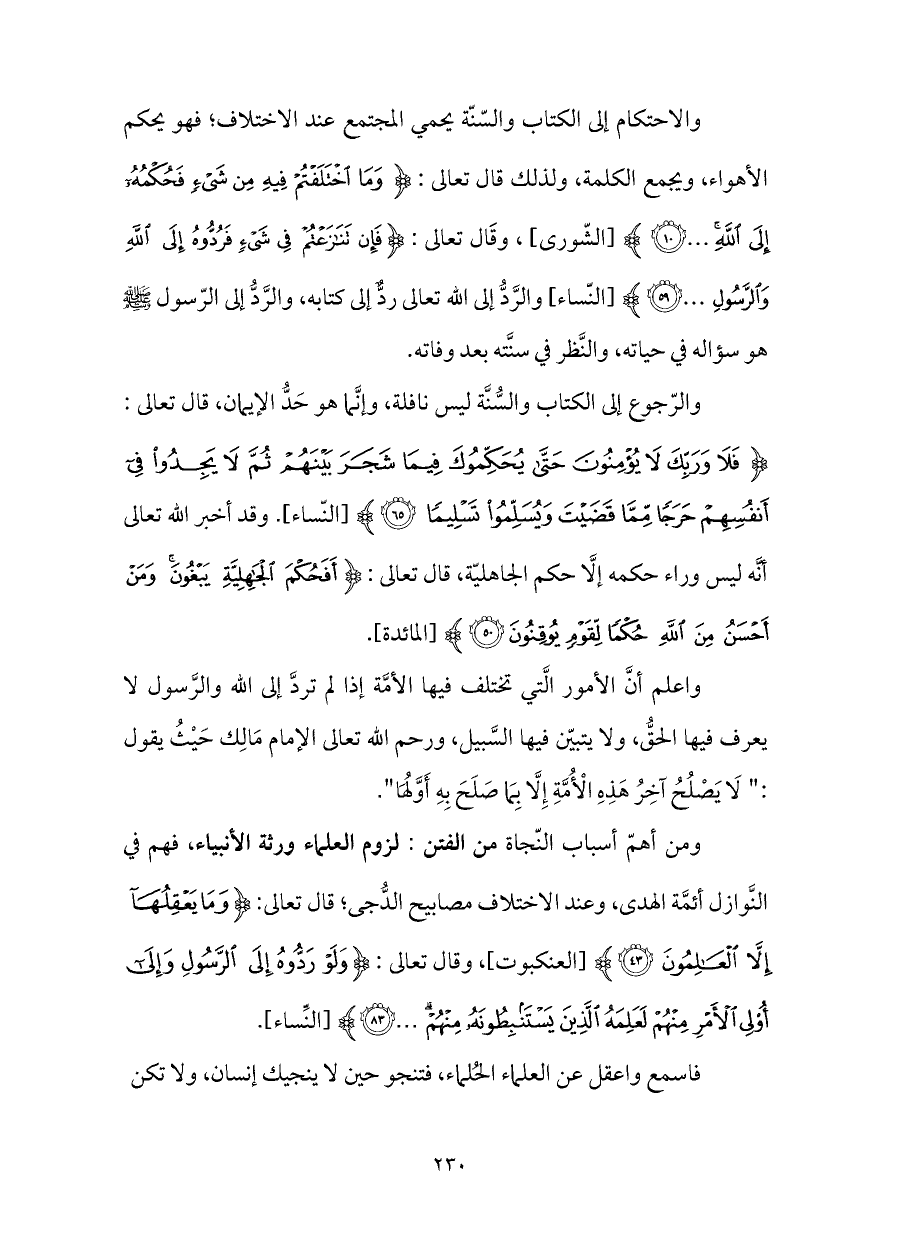 والاحتكام إلى الكتاب والسّنّة يحمي المجتمع عند الاختلاف؛ فهو يحكم
الأهواء، ويجمع الكلمة، ولذلك قال تعالى : ﴿ وَمَا ٱخْتَلَفْتُمْ فِيهِ مِن شَىْءٍ فَحُكْمُهُۥٓ
إِلَى ٱللَّهِ ۚ ... ١٠ ﴾ [الشّورى] ، وقَال تعالى : ﴿ فَإِن تَنَٰزَعْتُمْ فِى شَىْءٍ فَرُدُّوهُ إِلَى ٱللَّهِ
وَٱلرَّسُولِ ... ٥٩ ﴾ [النّساء] والرَّدُّ إلى الله تعالى ردٌّ إلى كتابه، والرَّدُّ إلى الرّسول ﷺ
هو سؤاله في حياته، والنَّظر في سنَّته بعد وفاته.
والرّجوع إلى الكتاب والسُّنَّة ليس نافلة، وإنَّما هو حَدُّ الإيمان، قال تعالى :
﴿ فَلَا وَرَبِّكَ لَا يُؤْمِنُونَ حَتَّىٰ يُحَكِّمُوكَ فِيمَا شَجَرَ بَيْنَهُمْ ثُمَّ لَا يَجِدُوا۟ فِىٓ
أَنفُسِهِمْ حَرَجًا مِّمَّا قَضَيْتَ وَيُسَلِّمُوا۟ تَسْلِيمًا ٦٥ ﴾ [النّساء]. وقد أخبر الله تعالى
أنَّه ليس وراء حكمه إلَّا حكم الجاهليّة، قال تعالى : ﴿ أَفَحُكْمَ ٱلْجَٰهِلِيَّةِ يَبْغُونَ ۚ وَمَنْ
أَحْسَنُ مِنَ ٱللَّهِ حُكْمًا لِّقَوْمٍ يُوقِنُونَ ٥٠ ﴾ [المائدة].
واعلم أنَّ الأمور الَّتي تختلف فيها الأمَّة إذا لم تردَّ إلى الله والرَّسول لا
يعرف فيها الحقُّ، ولا يتبيّن فيها السَّبيل، ورحم الله تعالى الإمام مَالِك حَيْثُ يقول
:" لَا يَصْلُحُ آخِرُ هَذِهِ الْأُمَّةِ إِلَّا بِمَا صَلَحَ بِهِ أَوَّلُهَا".
ومن أهمّ أسباب النّجاة من الفتن : لزوم العلماء ورثة الأنبياء، فهم في
النَّوازل أئمَّة الهدى، وعند الاختلاف مصابيح الدُّجى؛ قال تعالى: ﴿ وَمَا يَعْقِلُهَآ
إِلَّا ٱلْعَٰلِمُونَ ٤٣ ﴾ [العنكبوت]، وقال تعالى : ﴿ وَلَوْ رَدُّوهُ إِلَى ٱلرَّسُولِ وَإِلَىٰٓ
أُو۟لِى ٱلْأَمْرِ مِنْهُمْ لَعَلِمَهُ ٱلَّذِينَ يَسْتَنۢبِطُونَهُۥ مِنْهُمْ ۗ ... ٨٣ ﴾ [النِّساء].
فاسمع واعقل عن العلماء الحُلماء، فتنجو حين لا ينجيك إنسان، ولا تكن
٢٣٠